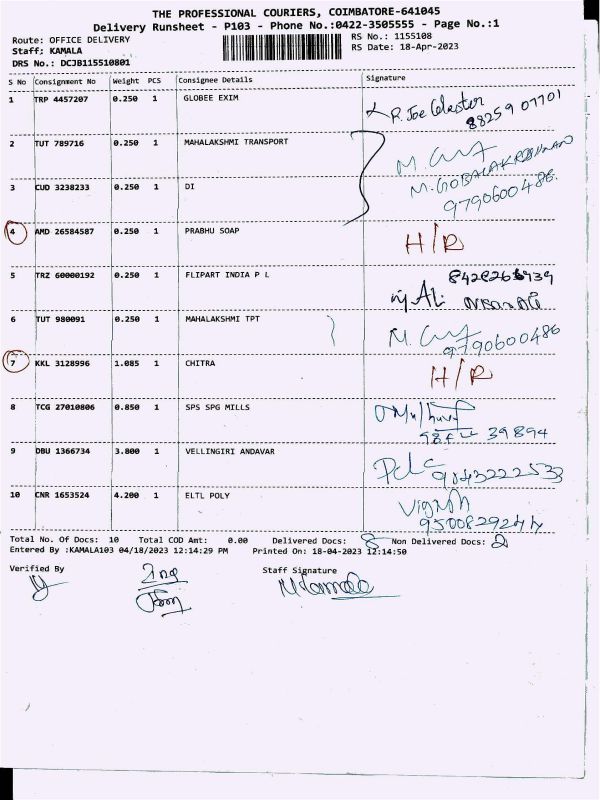 THE PROFESSIONAL COURIERS, COIMBATORE-641045
Delivery Runsheet - P103 - Phone No.:0422-3505555 - Page No.:1
Route: OFFICE DELIVERY RS No.: 1155108
Staff: KAMALA RS Date: 18-Apr-2023
DRS No.: DCJB115510801
S No Consignment No Weight PCS Consignee Details Signature
1 TRP 4457207 0.250 1 GLOBEE EXIM R. Joe
88259 07701
2 TUT 789716 0.250 1 MAHALAKSHMI TRANSPORT M.
M. GOBALAKRISHNAN
3 CUD 3238233 0.250 1 DI
9790600486.
4 AMD 26584587 0.250 1 PRABHU SOAP H/R
5 TRZ 60000192 0.250 1 FLIPART INDIA P L
Ali
6 TUT 980091 0.250 1 MAHALAKSHMI TPT M.
9790600486
7 KKL 3128996 1.085 1 CHITRA H/R
8 TCG 27010806 0.850 1 SPS SPG MILLS
39894
9 DBU 1366734 3.800 1 VELLINGIRI ANDAVAR
9843222533
10 CNR 1653524 4.200 1 ELTL POLY Vignesh
9500829244
Total No. Of Docs: 10 Total COD Amt: 0.00 Delivered Docs: 8 Non Delivered Docs: 2
Entered By :KAMALA103 04/18/2023 12:14:29 PM Printed On: 18-04-2023 12:14:50
Verified By Staff Signature